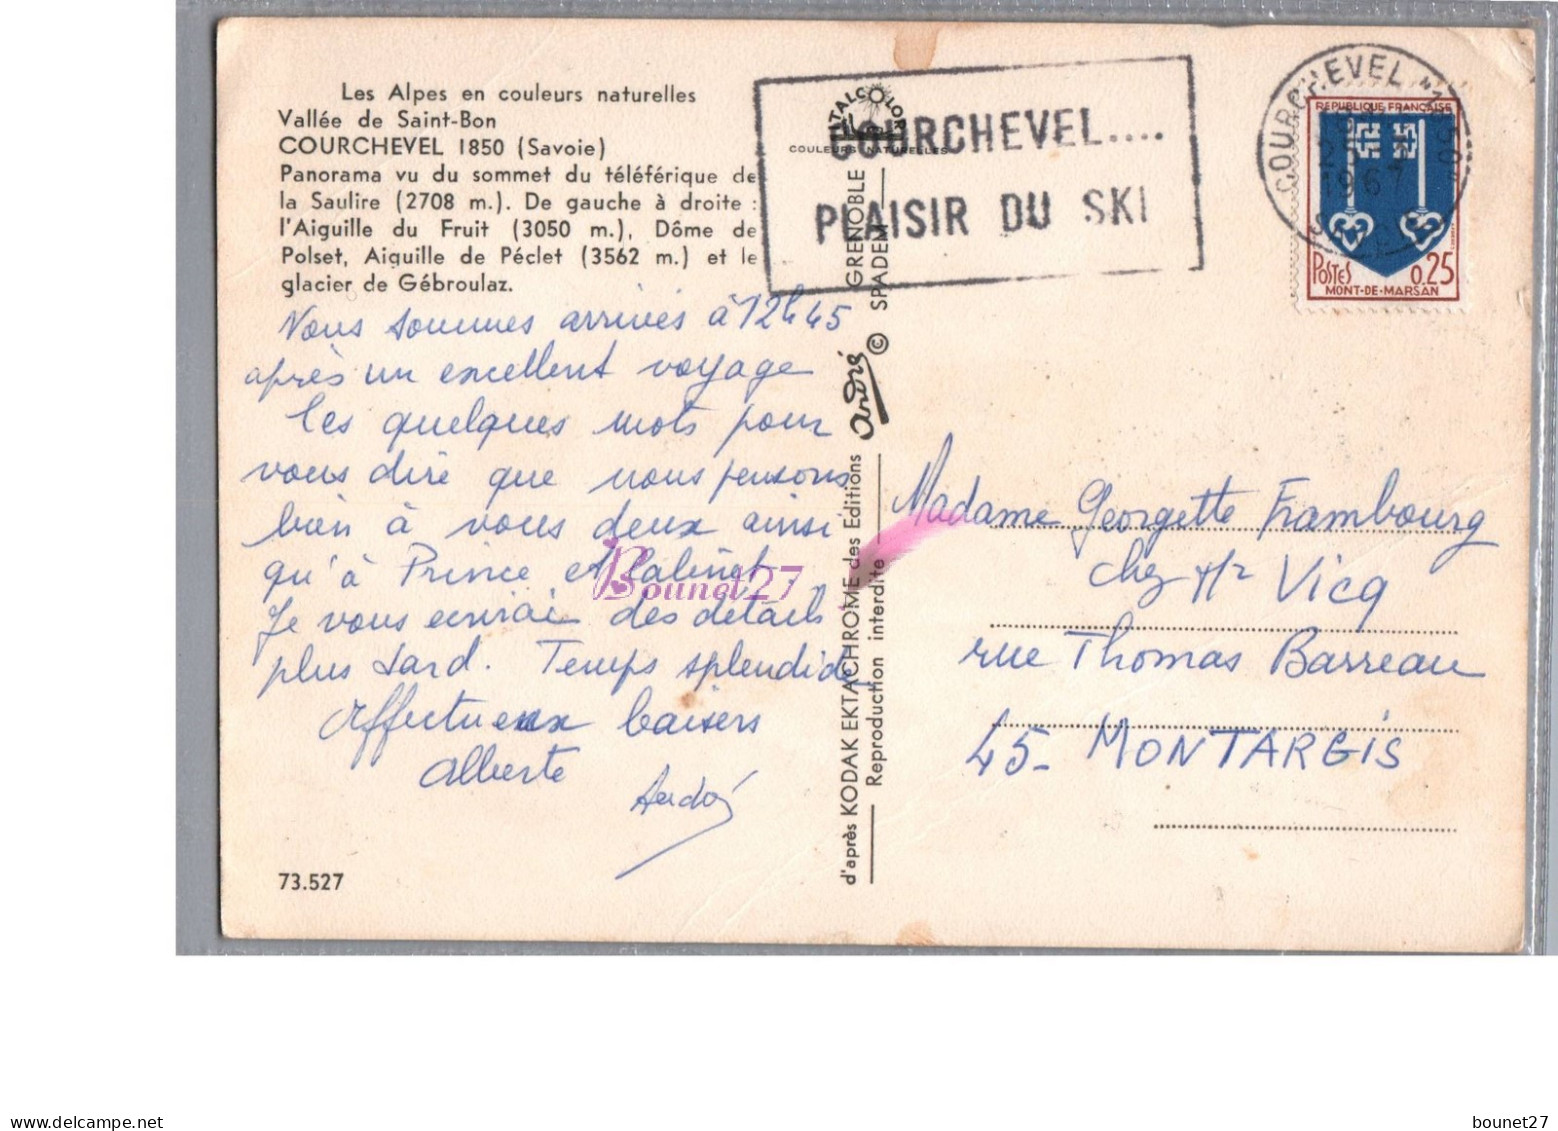 Les Alpes en couleurs naturelles
Vallée de Saint-Bon
COURCHEVEL 1850 (Savoie)
Panorama vu du sommet du téléférique de
la Saulire (2708 m.). De gauche à droite :
l'Aiguille du Fruit (3050 m.), Dôme de
Polset, Aiguille de Péclet (3562 m.) et le
glacier de Gébroulaz.
Nous sommes arrivés à 12h45
après un excellent voyage
Ces quelques mots pour
vous dire que nous pensons
bien à vous deux ainsi
qu'à Prince et
Je vous écrirai des détails
plus tard. Temps splendide
Affectueux baisers
Alberte
73.527
COULEURS NATURELLES
COURCHEVEL....
PLAISIR DU SKI
d'après KODAK EKTACHROME des Editions André GRENOBLE
Reproduction interdite © SPADEM
COURCHEVEL "1850"
1967
SAVOIE
REPUBLIQUE FRANÇAISE
POSTES 0,25
MONT-DE-MARSAN
Madame Georgette Frambourg
chez Mr Vicq
rue Thomas Barreau
45- MONTARGIS
Bounet27
delcampe.net
bounet27